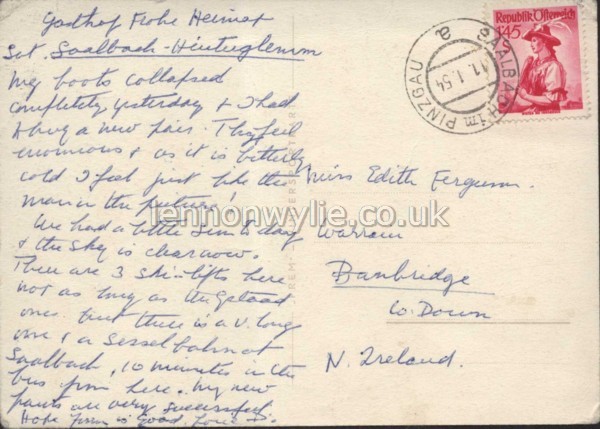 Gasthof Frohe Heimat
Saalbach-Hinterglemm
My boots collapsed
completely yesterday & I had
to buy a new pair. They feel
enormous & as it is bitterly
cold I feel just like the
man in the picture!
We had a little sun today
& the sky is clear now.
There are 3 ski-lifts here
not as long as the
ones but there is a v. long
one & a Sesselbahn at
Saalbach, 10 minutes in the
bus from here. My new
pants are very successful
Hope is good. Love
Republik Österreich
1.45
SAALBACH im PINZGAU
11.1.54
e
Miss Edith Ferguson.
Banbridge
Co. Down
N. Ireland.
lennonwylie.co.uk